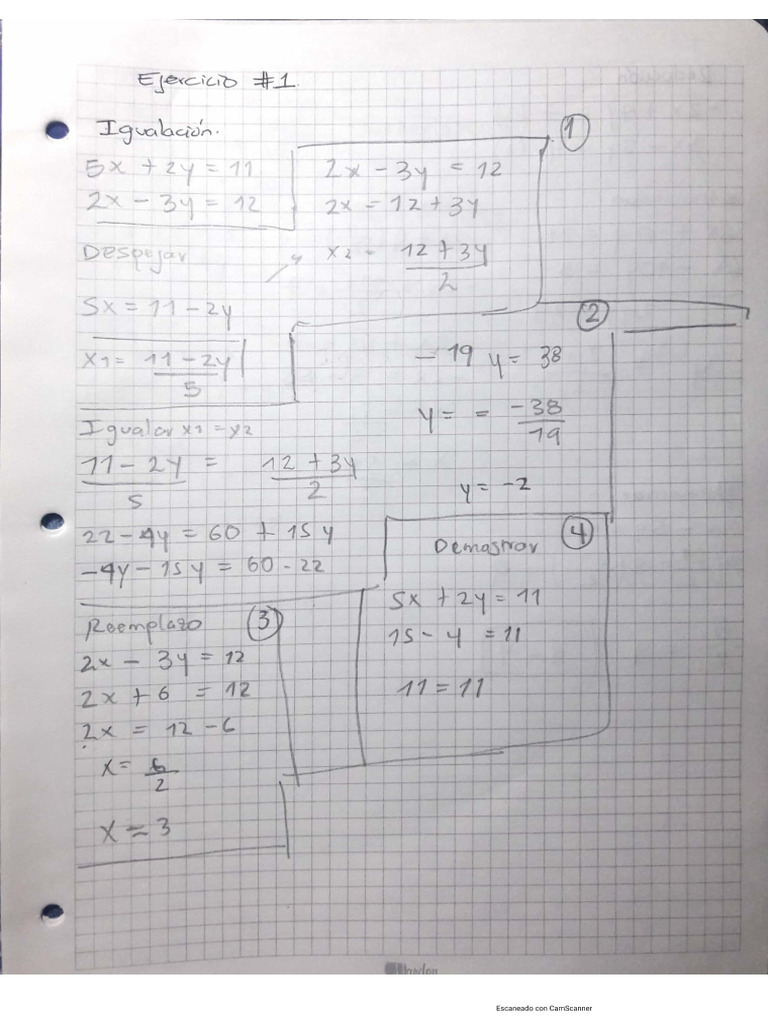 Ejercicio #1.
Igualación.
5x + 2y = 11
2x - 3y = 12
Despejar
5x = 11 - 2y
x1 = 11 - 2y / 5
1
2x - 3y = 12
2x = 12 + 3y
x2 = 12 + 3y / 2
Igualar x1 = x2
11 - 2y / 5 = 12 + 3y / 2
22 - 4y = 60 + 15y
-4y - 15y = 60 - 22
2
- 19 y = 38
y = = -38 / 19
y = -2
Reemplazo 3
2x - 3y = 12
2x + 6 = 12
2x = 12 - 6
x = 6 / 2
x = 3
Demostrar 4
5x + 2y = 11
15 - 4 = 11
11 = 11
Escaneado con CamScanner